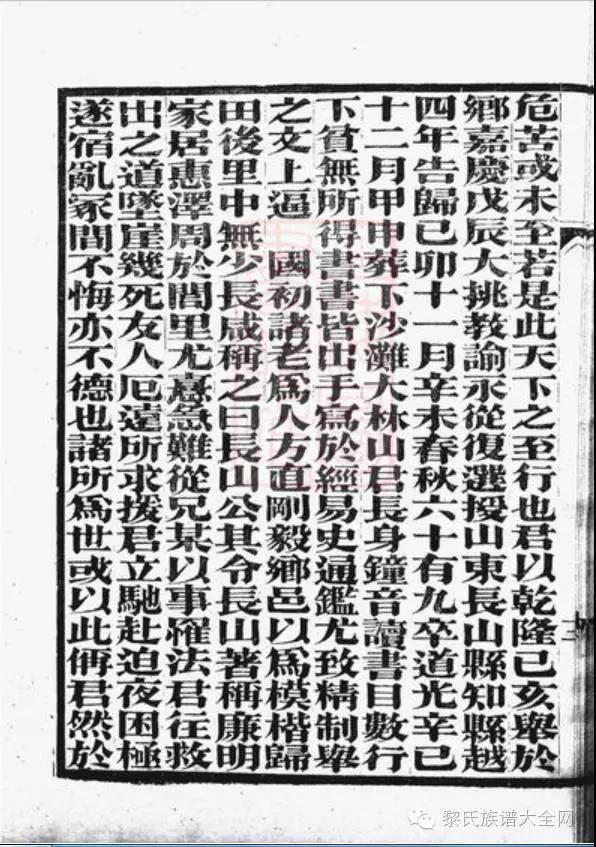 危苦或未至若是此天下之至行也君以乾隆己亥舉於
鄉嘉慶戊辰大挑教諭永從復選授山東長山縣知縣越
四年告歸己卯十一月辛未春秋六十有九卒道光辛巳
十二月甲申葬下沙灘大林山君長身鐘音讀書目數行
下貧無所得書書皆出手寫於經易史通鑑尤致精制舉
之文上逼　國初諸老為人方直剛毅鄉邑以為模楷歸
田後里中無少長咸稱之曰長山公其令長山著稱廉明
家居惠澤周於閭里尤喜急難從兄某以事罹法君往救
出之道墜崖幾死友人厄遠所求援君立馳赴迫夜困極
遂宿亂冢間不悔亦不德也諸所為世或以此偁君然於
黎氏族谱大全网